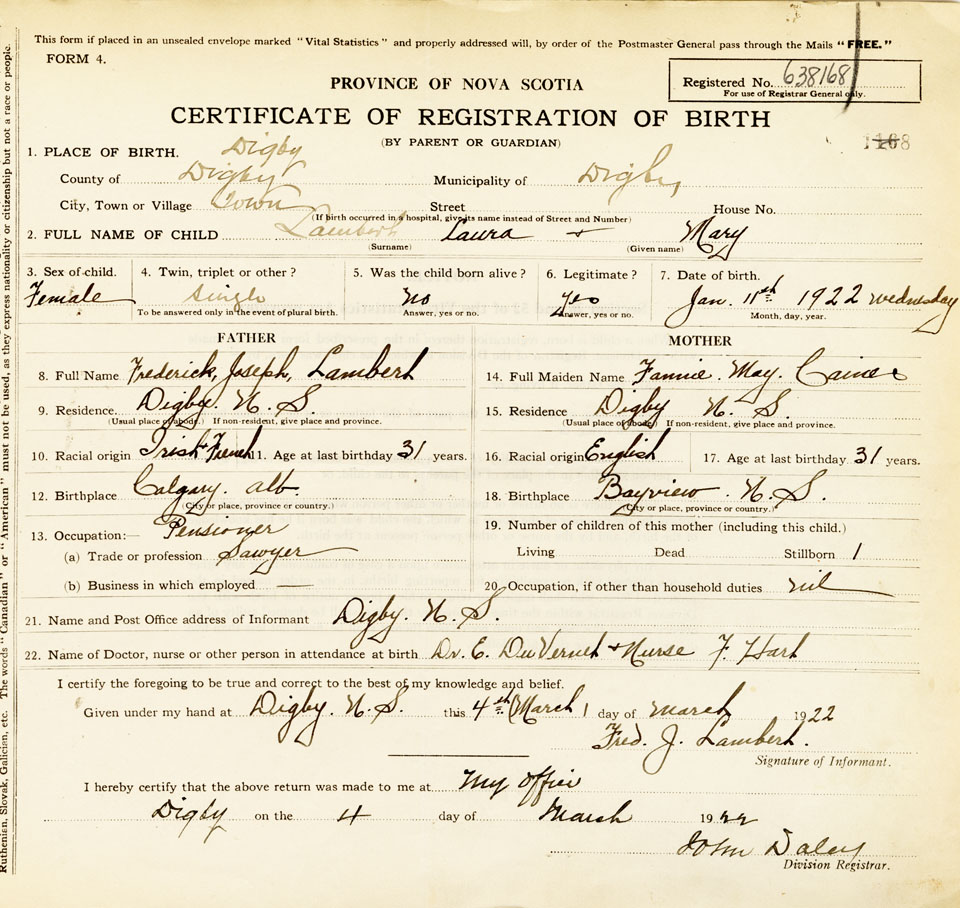 This form if placed in an unsealed envelope marked "Vital Statistics" and properly addressed will, by order of the Postmaster General pass through the Mails "FREE."
FORM 4.
PROVINCE OF NOVA SCOTIA
Registered No. 638168
For use of Registrar General only.
CERTIFICATE OF REGISTRATION OF BIRTH
(BY PARENT OR GUARDIAN)
1. PLACE OF BIRTH. Digby
County of Digby Municipality of Digby,
City, Town or Village Town Street House No.
(If birth occurred in a hospital, give its name instead of Street and Number)
2. FULL NAME OF CHILD Lambert Laura + Mary
(Surname) (Given name)
3. Sex of child. 4. Twin, triplet or other? 5. Was the child born alive? 6. Legitimate? 7. Date of birth.
Female Single no yes Jan. 11th 1922 Wednesday
To be answered only in the event of plural birth. Answer, yes or no. Answer, yes or no. Month, day, year.
FATHER
8. Full Name Frederick, Joseph, Lambert
9. Residence. Digby. N. S.
(Usual place of abode.) If non-resident, give place and province.
10. Racial origin Irish + French 11. Age at last birthday 31 years.
12. Birthplace Calgary. Alb.
(City or place, province or country.)
13. Occupation:— Pensioner
(a) Trade or profession Sawyer
(b) Business in which employed —
MOTHER
14. Full Maiden Name Fannie. May.
15. Residence Digby N. S.
(Usual place of abode) If non-resident, give place and province.
16. Racial origin English 17. Age at last birthday 31 years.
18. Birthplace Bayview. N. S.
(City or place, province or country.)
19. Number of children of this mother (including this child.)
Living Dead Stillborn 1
20. Occupation, if other than household duties nil
21. Name and Post Office address of Informant Digby. N. S.
22. Name of Doctor, nurse or other person in attendance at birth Dr. E. DuVernet + Nurse F. Hart
I certify the foregoing to be true and correct to the best of my knowledge and belief.
Given under my hand at Digby. N. S. this 4th (March) day of March 1922
Fred. J. Lambert.
Signature of Informant.
I hereby certify that the above return was made to me at My Office
Digby on the 4 day of March 1922
John Daley
Division Registrar.
Ruthenian, Slovak, Galician, etc. The words "Canadian" or "American" must not be used, as they express nationality or citizenship but not a race or people.